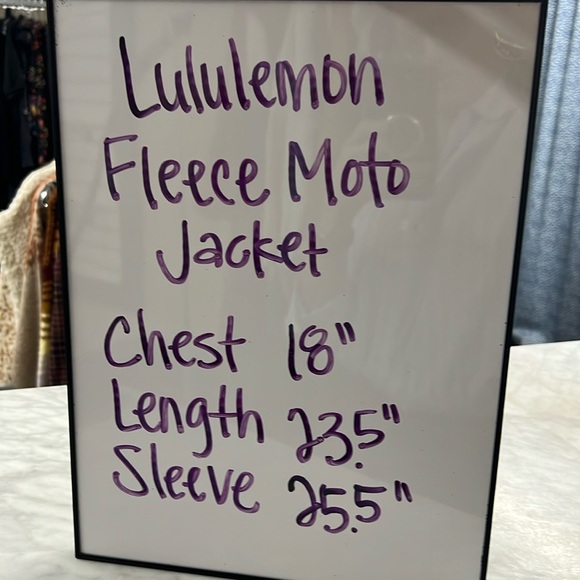 Lululemon
Fleece Moto
Jacket
Chest 18"
Length 23.5"
Sleeve 25.5"